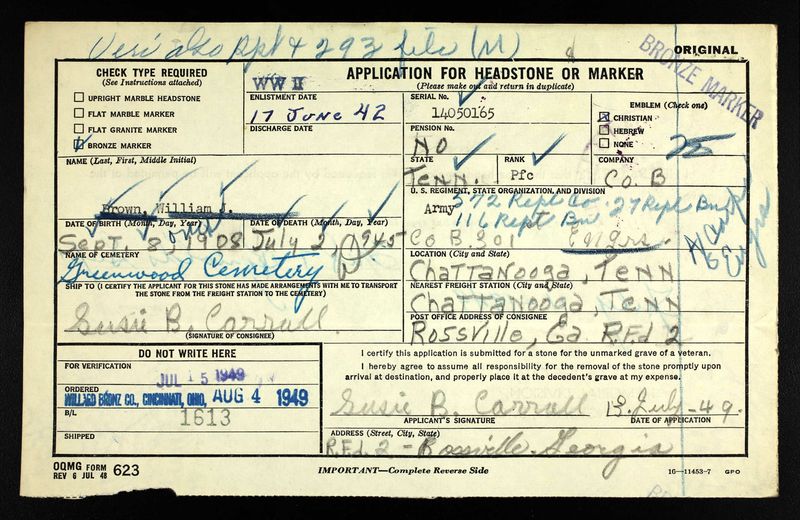 Veri also Rpt + 293 file (M)
ORIGINAL
BRONZE MARKER
CHECK TYPE REQUIRED
(See Instructions attached)
UPRIGHT MARBLE HEADSTONE
FLAT MARBLE MARKER
FLAT GRANITE MARKER
BRONZE MARKER
APPLICATION FOR HEADSTONE OR MARKER
(Please make out and return in duplicate)
WW II
ENLISTMENT DATE
17 June 42
DISCHARGE DATE
SERIAL No.
14050165
PENSION No.
NO
EMBLEM (Check one)
CHRISTIAN
HEBREW
NONE
STATE
Tenn.
RANK
Pfc
COMPANY
Co. B
NAME (Last, First, Middle Initial)
Brown, William J.
U. S. REGIMENT, STATE ORGANIZATION, AND DIVISION
Army 372 Repl Co. 27 Repl Bn
116 Repl Bn
Co B. 301 Engrs.
DATE OF BIRTH (Month, Day, Year)
Sept. 8, 1908
DATE OF DEATH (Month, Day, Year)
July 2, 1945
over
NAME OF CEMETERY
Greenwood Cemetery
LOCATION (City and State)
Chattanooga, Tenn
SHIP TO (I CERTIFY THE APPLICANT FOR THIS STONE HAS MADE ARRANGEMENTS WITH ME TO TRANSPORT
THE STONE FROM THE FREIGHT STATION TO THE CEMETERY)
NEAREST FREIGHT STATION (City and State)
Chattanooga, Tenn
Susie B. Carrall
(SIGNATURE OF CONSIGNEE)
POST OFFICE ADDRESS OF CONSIGNEE
Rossville, Ga R.F.d 2
DO NOT WRITE HERE
FOR VERIFICATION
JUL 15 1949
ORDERED
WILLARD BRONZ CO., CINCINNATI, OHIO, AUG 4 1949
B/L
1613
SHIPPED
I certify this application is submitted for a stone for the unmarked grave of a veteran.
I hereby agree to assume all responsibility for the removal of the stone promptly upon
arrival at destination, and properly place it at the decedent's grave at my expense.
Susie B. Carrall 13 July-49.
APPLICANT'S SIGNATURE
DATE OF APPLICATION
ADDRESS (Street, City, State)
R.F.d. 2 - Rossville. Georgia
OQMG FORM
REV 6 JUL 48 623
IMPORTANT—Complete Reverse Side
16—11453-7 GPO